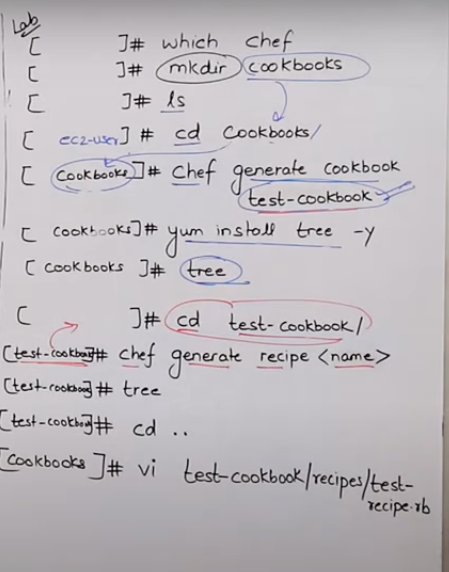 Lab
[ ]# which chef
[ ]# mkdir cookbooks
[ ]# ls
[ ec2-user] # cd Cookbooks/
[ cookbooks]# chef generate cookbook
test-cookbook
[ cookbooks]# yum install tree -y
[ cookbooks ]# tree
[ ]# cd test-cookbook/
[test-cookbook]# chef generate recipe <name>
[test-cookbook]# tree
[test-cookbook]# cd ..
[cookbooks ]# vi test-cookbook/recipes/test-
recipe.rb